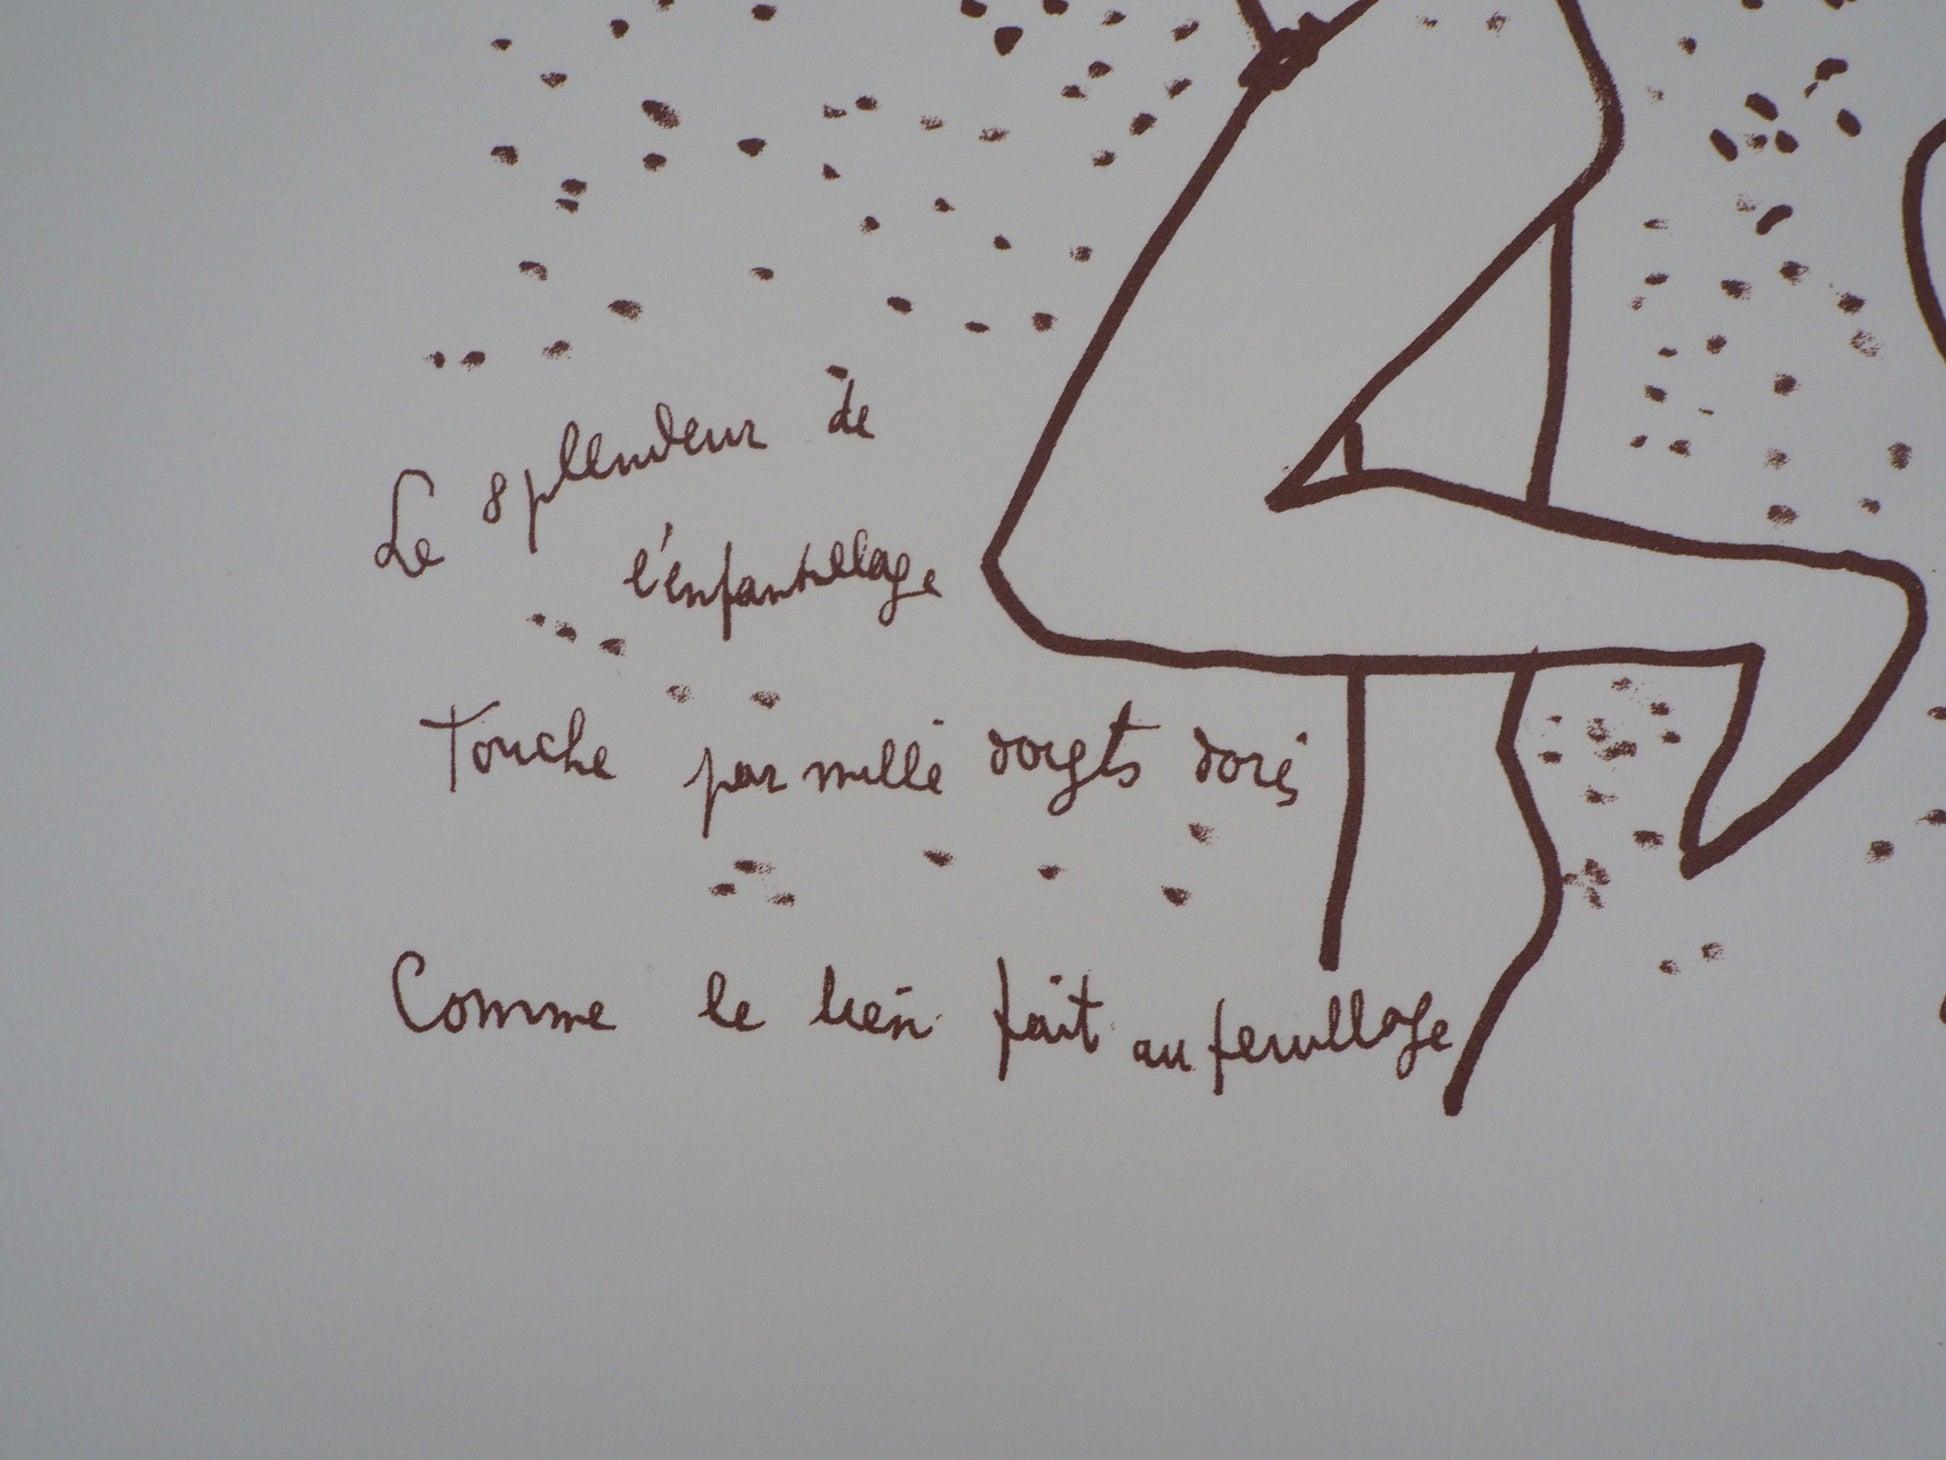 Le splendeur de
l'enfantillage
Touche par mille doigts dorés
Comme le bien fait au feuillage